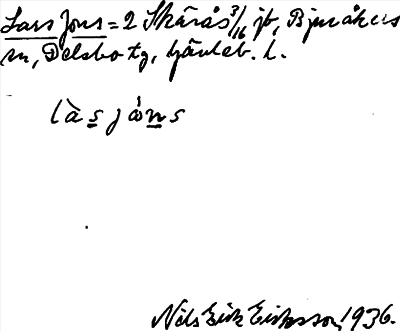 Lars Jons = 2 Skärås 3/16 jb, Bjuråkers
sn, Delsbo tg, Gävleb. l.
làs jóns
Nils Erik Eriksson 1936.